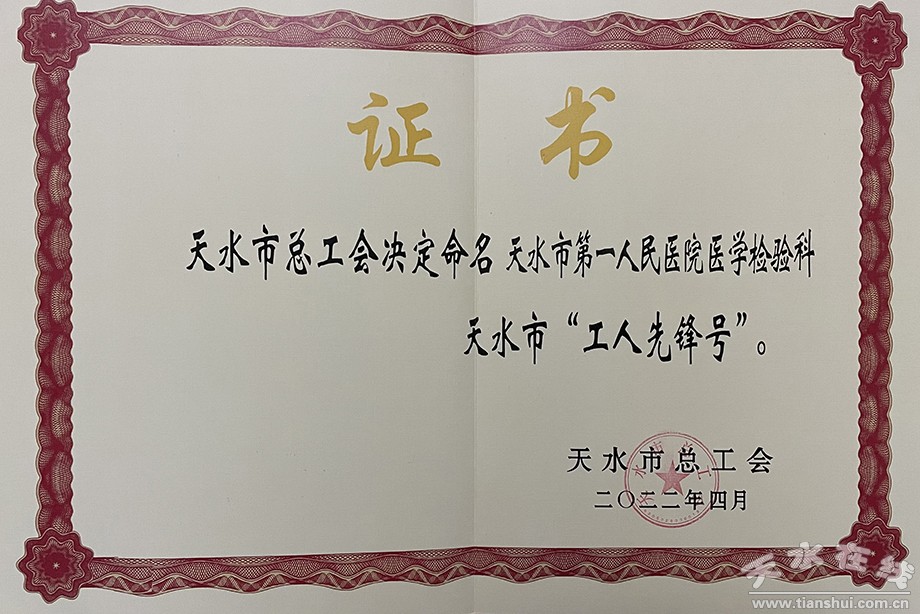 证 书
天水市总工会决定命名 天水市第一人民医院医学检验科
天水市“工人先锋号”。
天水市总工会
二〇二二年四月
天水在线
www.tianshui.com.cn